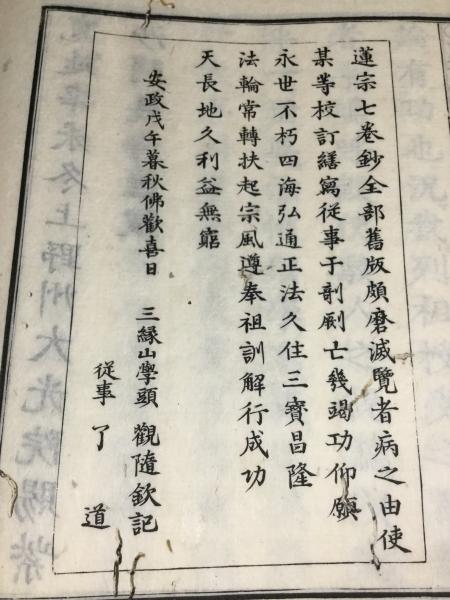 蓮宗七卷鈔全部舊版頗磨滅覽者病之由使
某等校訂繕寫從事于剞劂亡幾竭功仰願
永世不朽四海弘通正法久住三寶昌隆
法輪常轉扶起宗風遵奉祖訓解行成功
天長地久利益無窮
安政戊午暮秋佛歡喜日 三縁山學頭 觀隨欽記
從事 了道